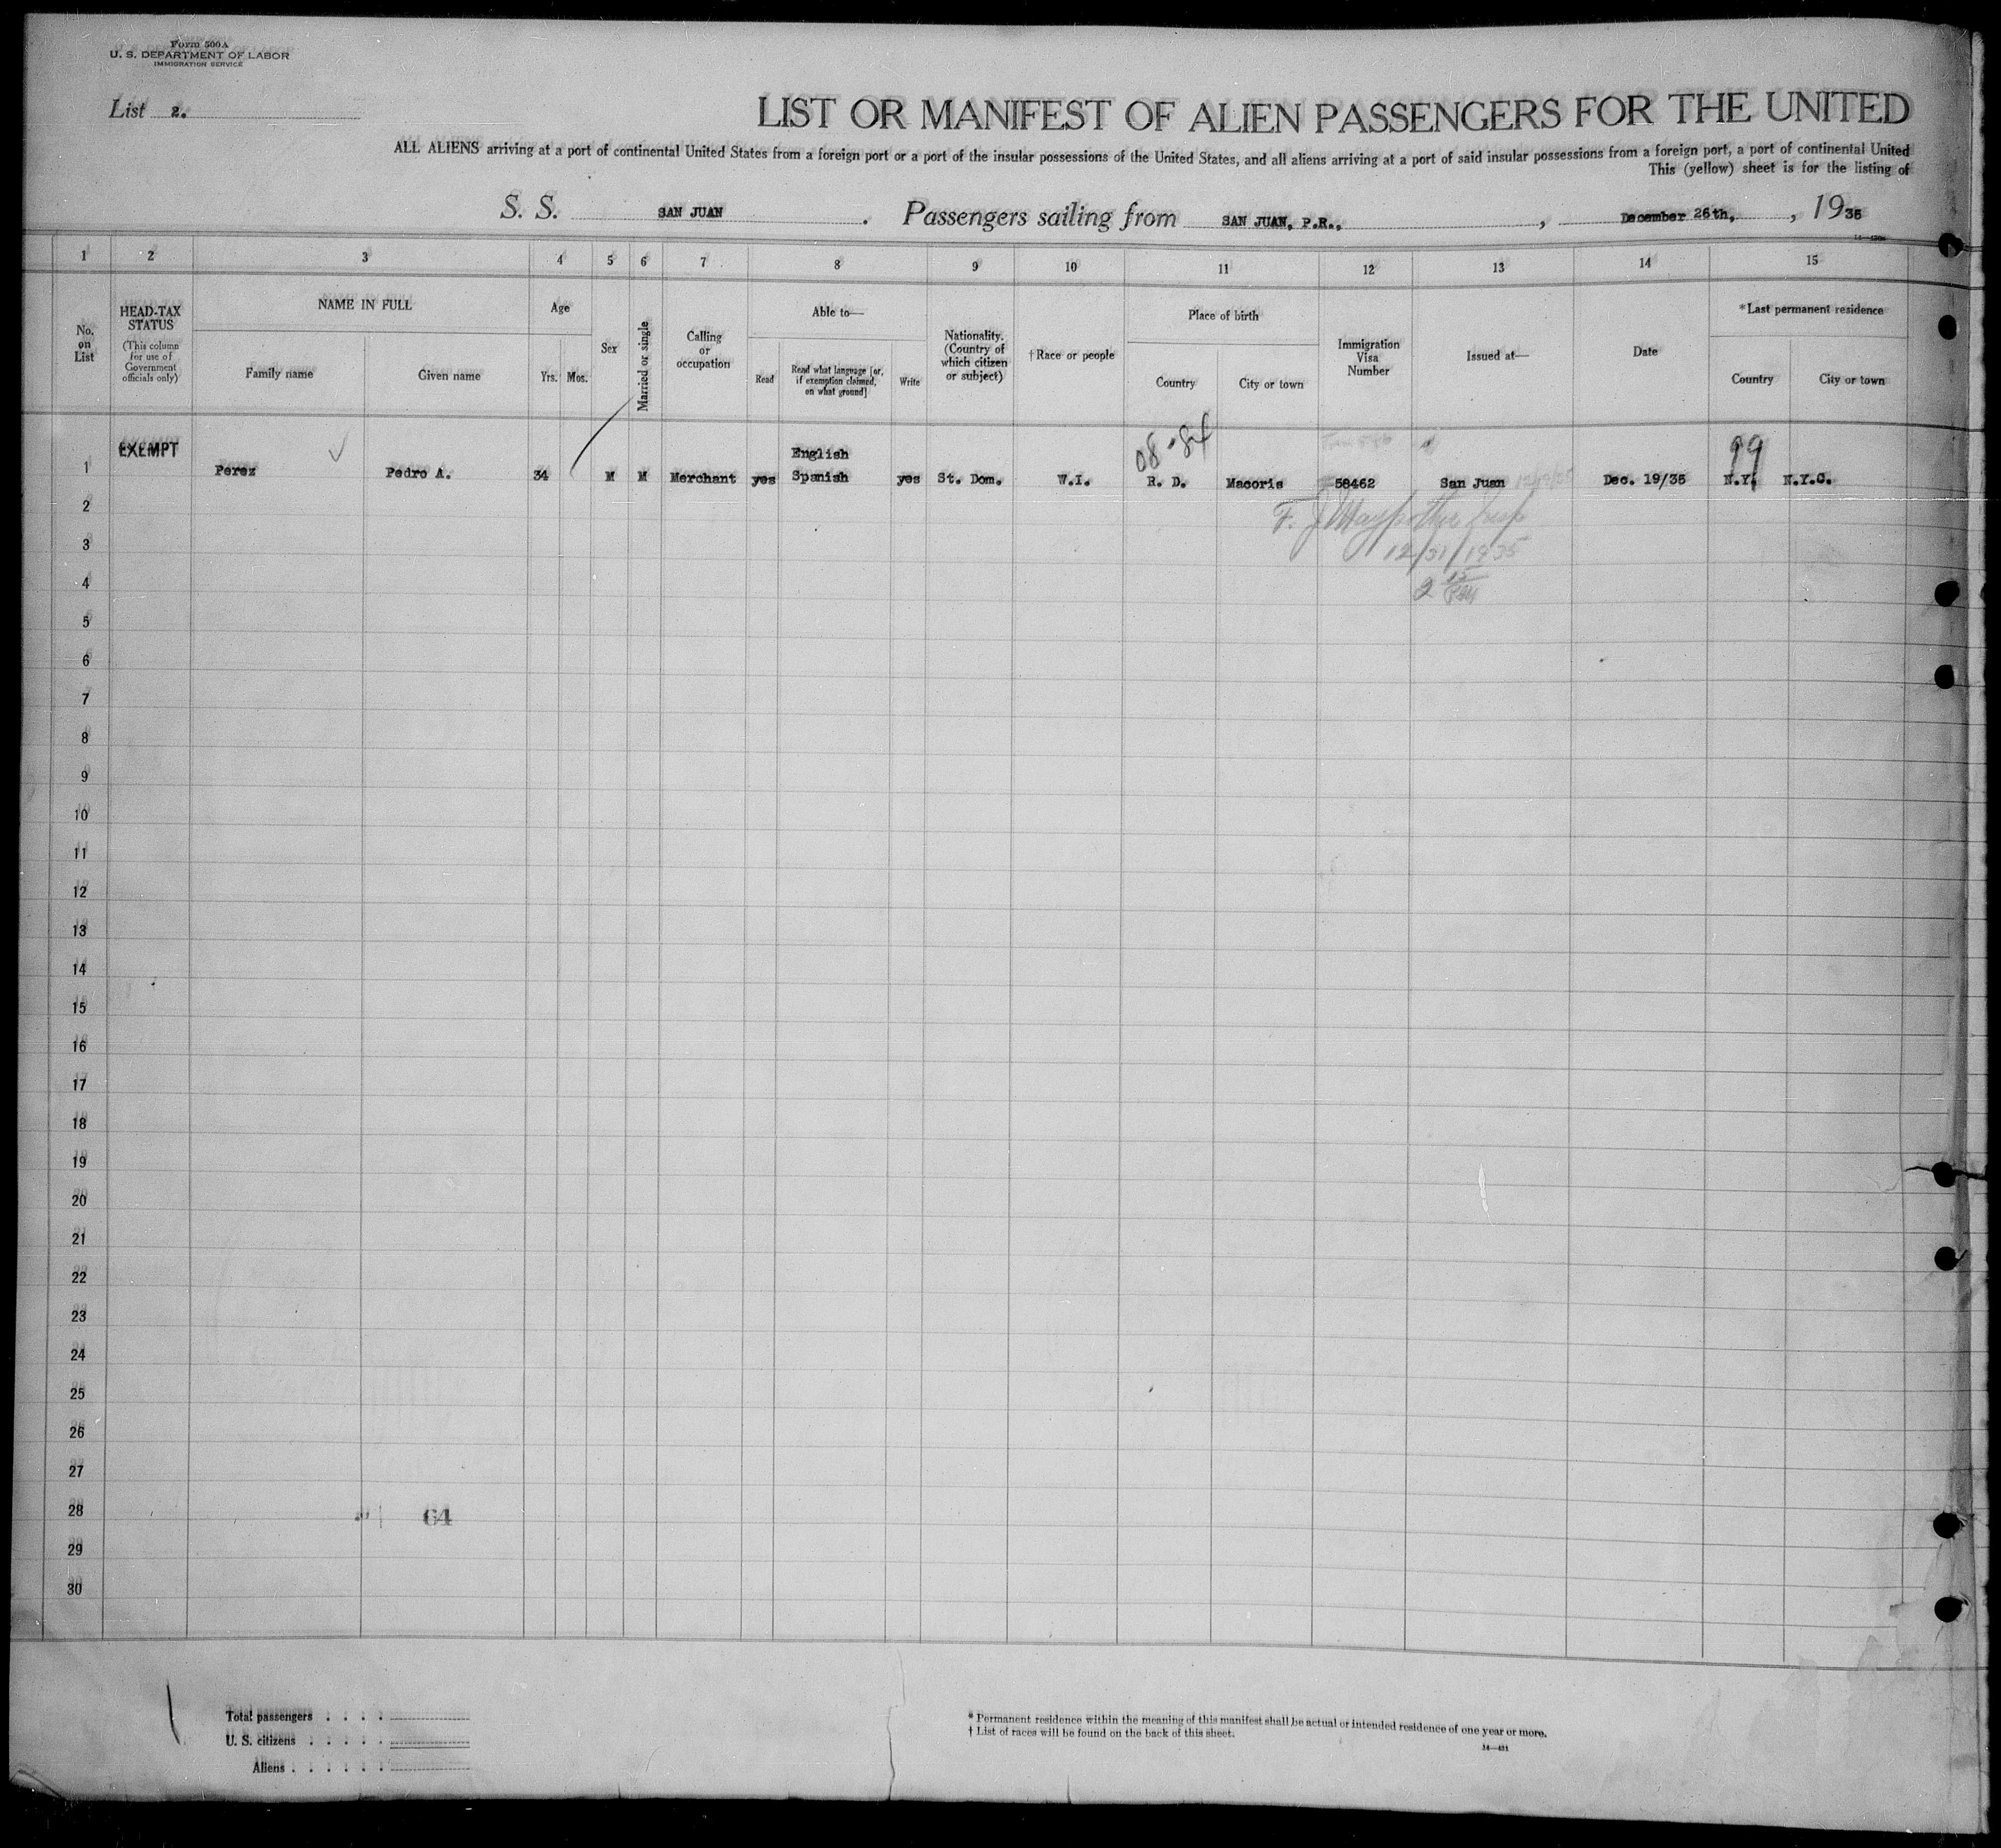 Form 500A
U. S. DEPARTMENT OF LABOR
IMMIGRATION SERVICE
List 2.
LIST OR MANIFEST OF ALIEN PASSENGERS FOR THE UNITED
ALL ALIENS arriving at a port of continental United States from a foreign port or a port of the insular possessions of the United States, and all aliens arriving at a port of said insular possessions from a foreign port, a port of continental United
This (yellow) sheet is for the listing of
S. S. SAN JUAN. Passengers sailing from SAN JUAN, P.R., , December 26th, , 1935
1 2 3 4 5 6 7 8 9 10 11 12 13 14 15
No. on List
HEAD-TAX STATUS
(This column for use of Government officials only)
NAME IN FULL
Family name
Given name
Age
Yrs. Mos.
Sex
Married or single
Calling or occupation
Able to—
Read
Read what language [or, if exemption claimed, on what ground]
Write
Nationality. (Country of which citizen or subject)
†Race or people
Place of birth
Country
City or town
Immigration Visa Number
Issued at—
Date
*Last permanent residence
Country
City or town
08-84
99
EXEMPT
English
1 Perez Pedro A. 34 M M Merchant yes Spanish yes St. Dom. W.I. R. D. Macoris 58462 San Juan 12/19/35 Dec. 19/35 N.Y. N.Y.C.
2
F. J.
3
12/31/1935
4
2
5
6
7
8
9
10
11
12
13
14
15
16
17
18
19
20
21
22
23
24
25
26
27
28
64
29
30
Total passengers . . . .
U. S. citizens . . . . .
Aliens . . . . . .
* Permanent residence within the meaning of this manifest shall be actual or intended residence of one year or more.
† List of races will be found on the back of this sheet.